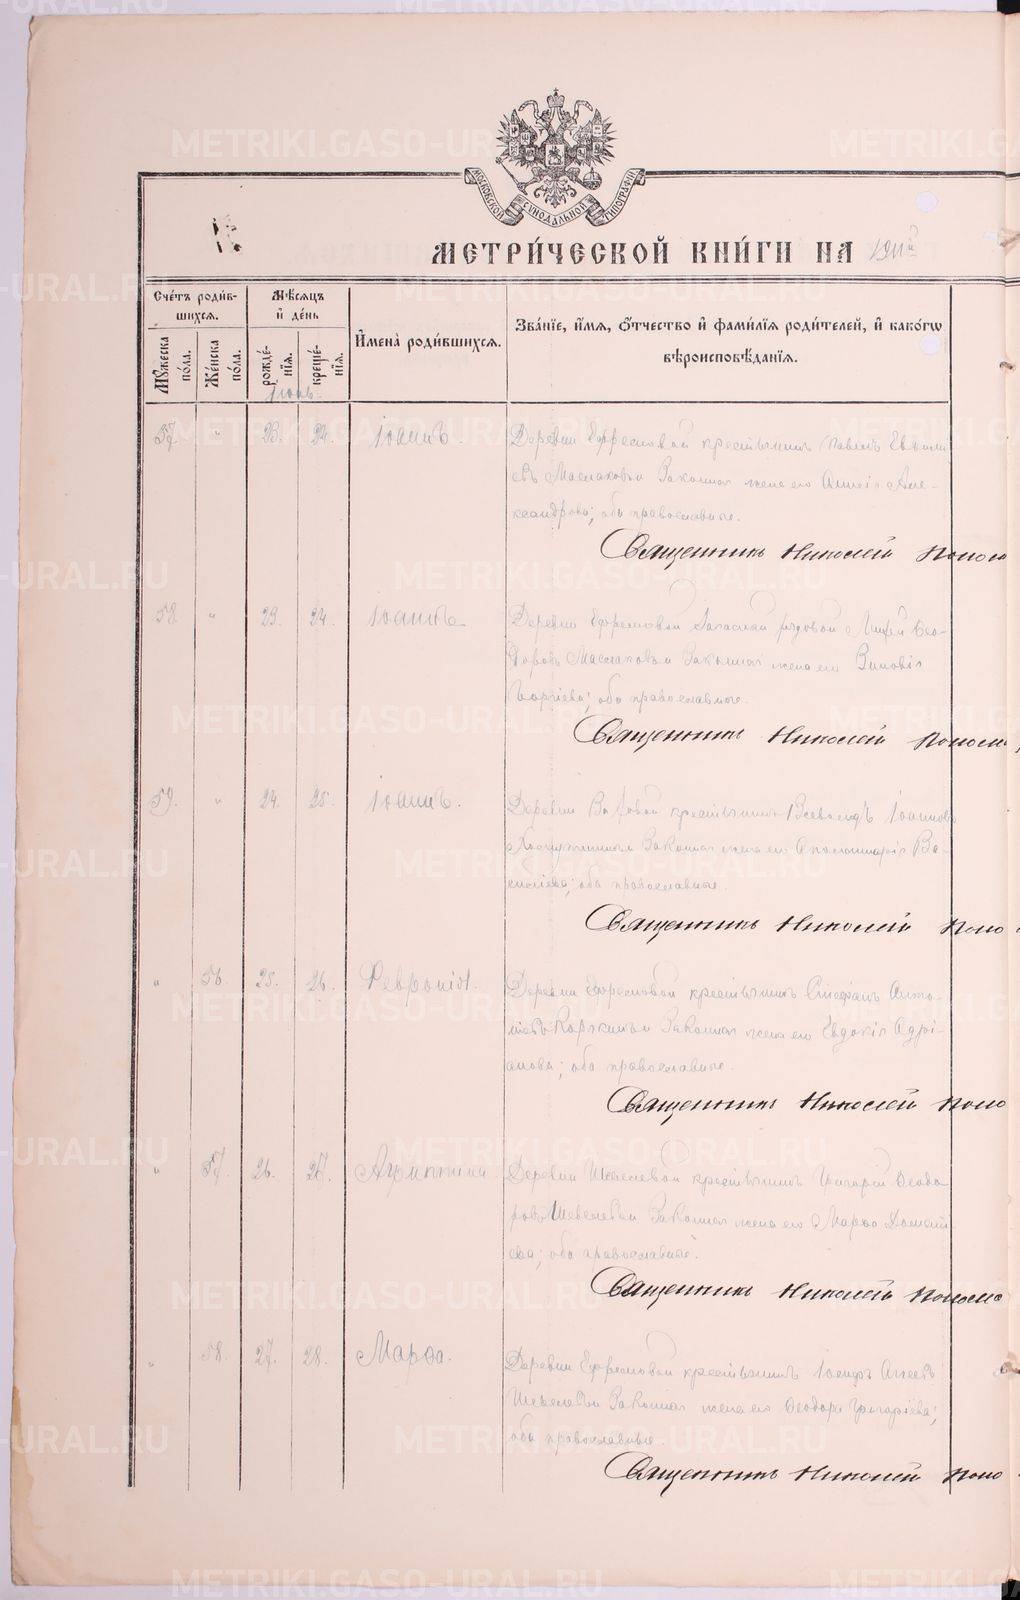 МОСКОВСКОЙ СѴНОДАЛЬНОЙ ТИПОГРАФІИ
МЕТРИ́ЧЕСКОЙ КНИ́ГИ НА 1911й
Сче́тъ роди́в-
шихся.
Мѣ́сяцъ
и҆ де́нь
И҆мена̀ роди́вшихся.
Зва́нїе, и҆́мя, ѻ҆́тчество и҆ фами́лїѧ роди́телей, и҆ како́гѡ
вѣроисповѣ́данїѧ.
Мꙋ́жеска
по́ла.
Же́нска
по́ла.
рожде́-
нїѧ.
креще́-
нїѧ.
Іюнь.
57. " 23. 24. Іоаннъ.
Деревни Ефремовой крестьянинъ Павелъ
въ Маслаковъ и Законная жена его Анна Але-
ксандрова; оба православные.
Священникъ Николай Поном
58. " 23. 24. Іоаннъ.
Деревни Ефремовой Запасный рядовой Ѳео-
доровъ Маслаковъ и Законная жена его Зиновія
Георгіева; оба православные.
Священникъ Николай Поном
59. " 24. 25. Іоаннъ.
Деревни крестьянинъ Всеволодъ Іоанновъ
и Законная жена его Аполлинарія Ва-
сильева; оба православные.
Священникъ Николай Поно
" 56. 25. 26. Февронія.
Деревни Ефремовой крестьянинъ Стефанъ Анто-
новъ и Законная жена его Евдокія Адрі-
анова; оба православные.
Священникъ Николай Поно
" 57. 26. 27. Агриппина.
Деревни Шевелевой крестьянинъ Григорій Ѳеодо-
ровъ Шевелевъ и Законная жена его Марѳа Домет-
ева; оба православные.
Священникъ Николай Понома
" 58. 27. 28. Марѳа.
Деревни Ефремовой крестьянинъ Іосифъ
Шевелевъ и Законная жена его Ѳеодора Григоріева;
оба православные.
Священникъ Николай Поно
METRIKI.GASO-URAL.RU